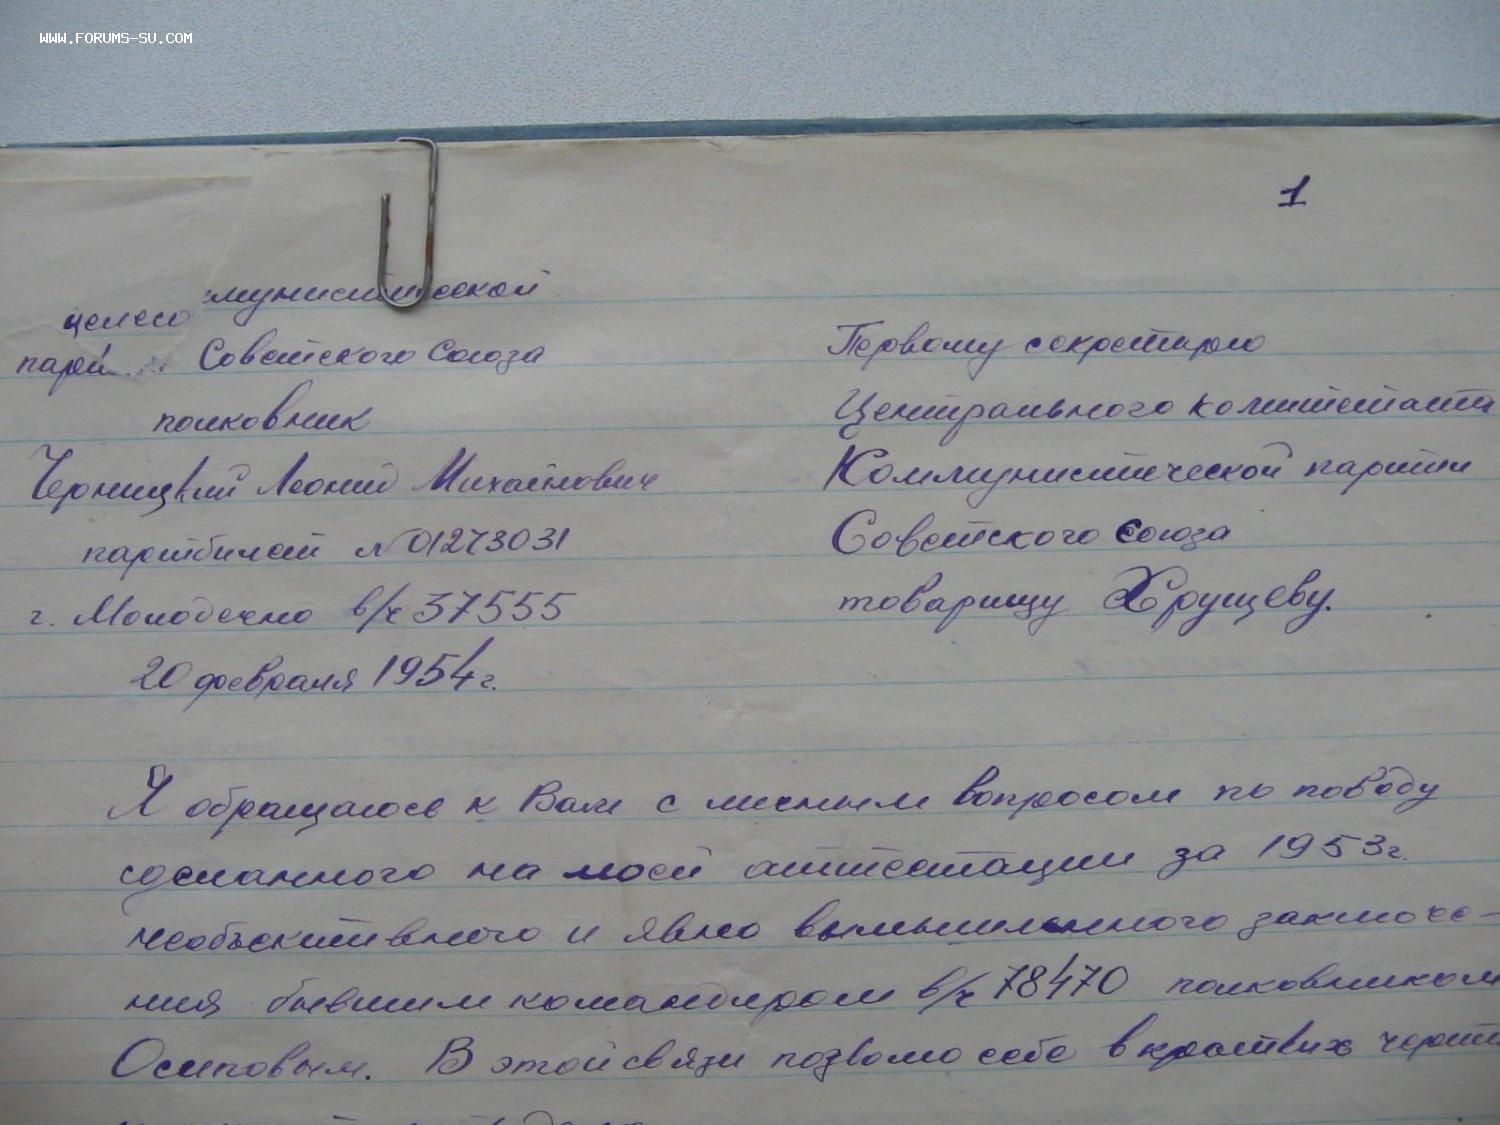 WWW.FORUMS-SU.COM
1
мунистической
парти Советского Союза
полковник
Черницкий Леонид Михайлович
партбилет № 01273031
г. Молодечно в/ч 37555
20 февраля 1954 г.
Первому секретарю
Центрального комитета
Коммунистической партии
Советского Союза
товарищу Хрущеву.
Я обращаюсь к Вам с личным вопросом по поводу
сделанного на моей аттестации за 1953 г.
необъективного и явно вымышленного заключе-
ния бывшим командиром в/ч 78470 полковником
Осиповым. В этой связи позволю себе в кратких черт